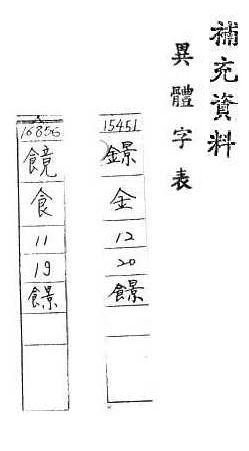 補充資料
異體字表
15451
鐛
金
12
20
16856
食
11
19